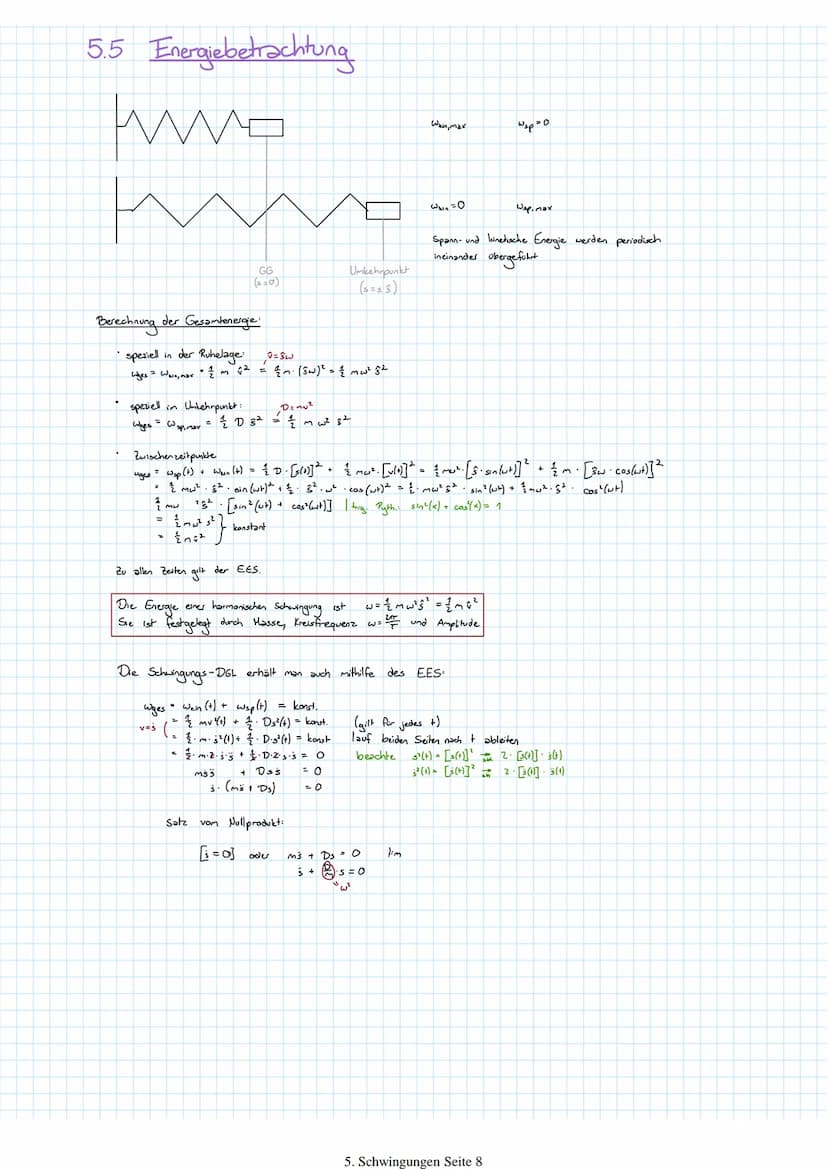 5.5 Energiebetrachtung
Wkin,max Wsp = 0
Wkin = 0 Wsp,max
Spann- und kinetische Energie werden periodisch
ineinander übergeführt
GG Umkehrpunkt
(s=0) (s=±ŝ)
Berechnung der Gesamtenergie:
· speziell in der Ruhelage: v̂=ŝω
Wges = Wkin,max = 1/2 m v̂² = 1/2 m · (ŝω)² = 1/2 mω² ŝ²
· speziell im Umkehrpunkt: D=mω²
Wges = Wsp,max = 1/2 D ŝ² = 1/2 m ω² ŝ²
· Zwischenzeitpunkte
Wges = Wsp(t) + Wkin(t) = 1/2 D · [s(t)]² + 1/2 mω² · [v(t)]² = 1/2 mω² · [ŝ · sin(ωt)]² + 1/2 m · [ŝω · cos(ωt)]²
= 1/2 mω² · ŝ² · sin(ωt)² + 1/2 · ŝ² · ω² · cos(ωt)² = 1/2 · mω² ŝ² · sin²(ωt) + 1/2 mω² · ŝ² · cos²(ωt)
1/2 mω² ŝ² · [sin²(ωt) + cos²(ωt)] | trig. Pyth.: sin²(x) + cos²(x) = 1
= 1/2 mω² ŝ² } konstant
= 1/2 m v̂²
Zu allen Zeiten gilt der EES.
Die Energie einer harmonischen Schwingung ist W = 1/2 m ω² ŝ² = 1/2 m v̂²
Sie ist festgelegt durch Masse, Kreisfrequenz ω = 2π/T und Amplitude
Die Schwingungs-DGL erhält man auch mithilfe des EES:
Wges = Wkin(t) + Wsp(t) = konst.
v=ṡ ( = 1/2 mv²(t) + 1/2 · Ds²(t) = konst. (gilt für jedes t)
= 1/2 · m · ṡ²(t) + 1/2 · D·s²(t) = konst lauf beiden Seiten nach t ableiten
= 1/2 · m · 2 · ṡ · s̈ + 1/2 · D · 2 · s · ṡ = 0 beachte s²(t) = [s(t)]² ⇒ 2 · [s(t)] · ṡ(t)
mṡs̈ + Dsṡ = 0 ṡ²(t) = [ṡ(t)]² ⇒ 2 · [ṡ(t)] · s̈(t)
ṡ · (ms̈ + Ds) = 0
Satz vom Nullprodukt:
[ṡ=0] oder ms̈ + Ds = 0 /:m
s̈ + D/m · s = 0
= ω²
5. Schwingungen Seite 8